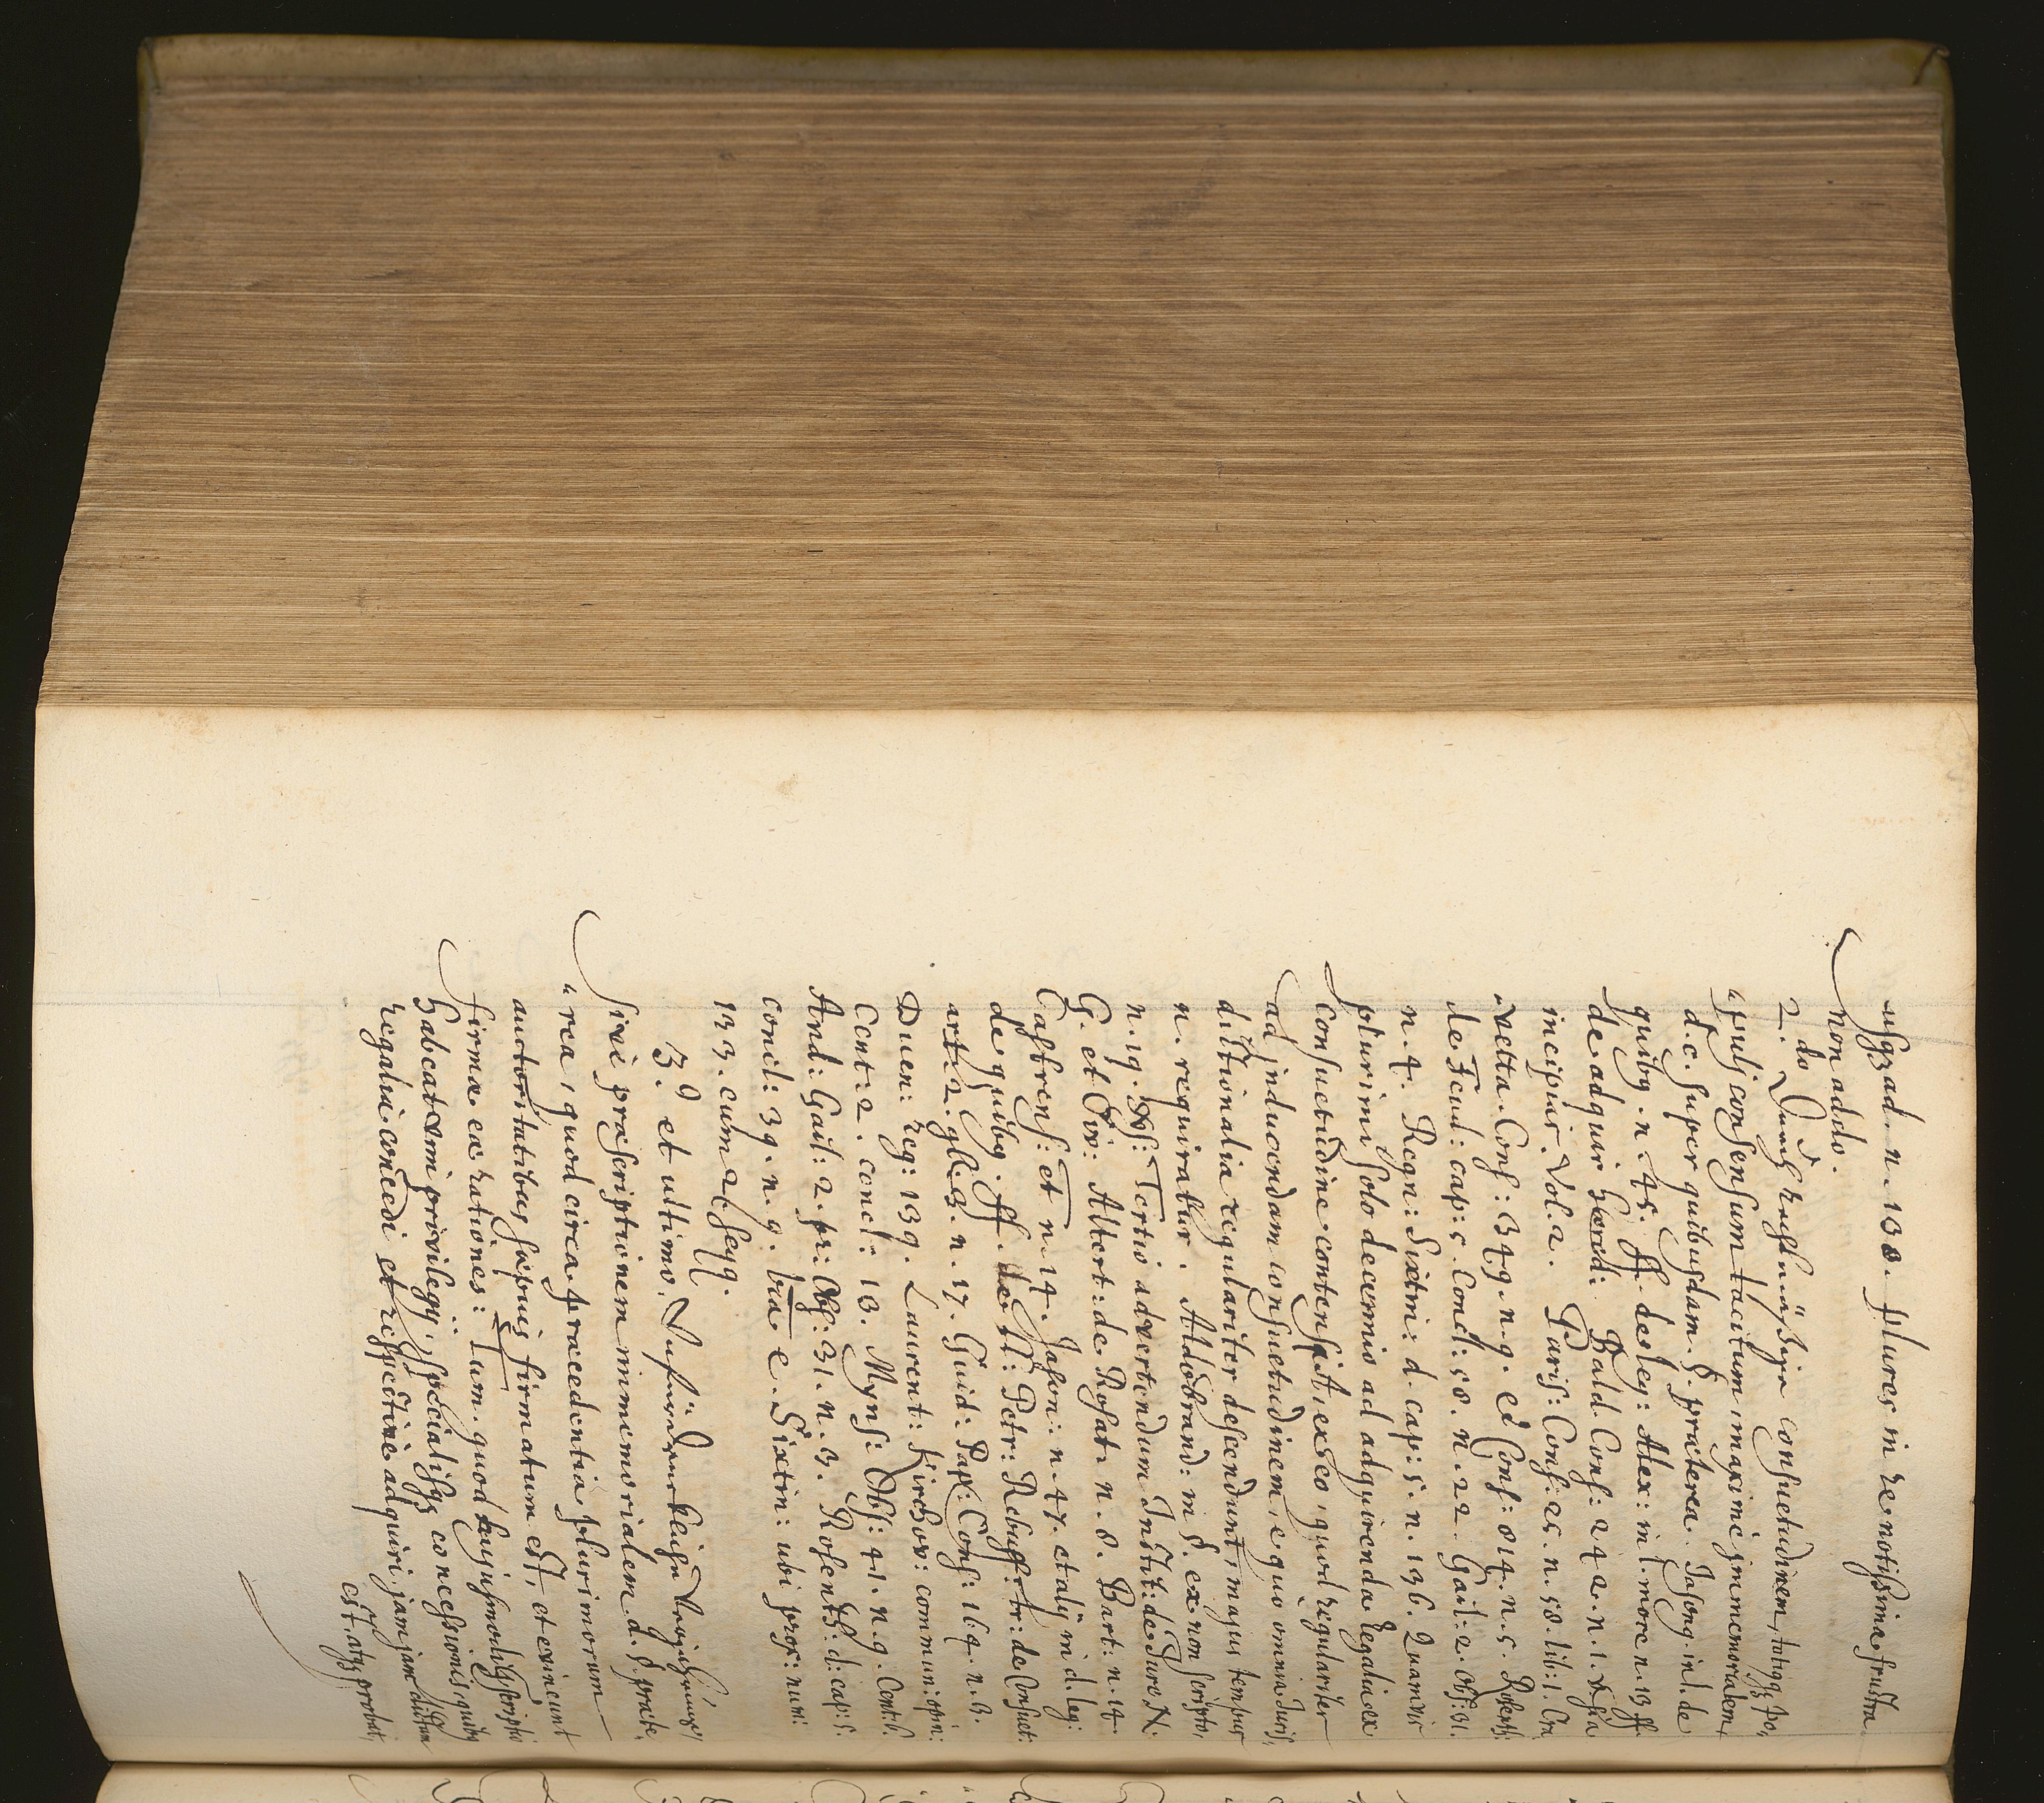 usqz ad. n. 138. plures in re notissima frustra
non addo.
2.do Durch rechtmäßige consuetudinem, totiqz po,
"puli consensum tacitum maximè immemorialem,
d. c. super quibusdam. §. præterea. Jason. in l. de
quibq. n. 45. ff. de leg: Alex: in l. more n. 13 ff
de adquir hæred: Bald. Cons: 242. n. 1.
incipit. Vol. 2. Paris: Cons: 25. n. 58. lib. 1.
vetta. Cons: 349. n. 9. et Cons: 814. n. 5. Rosenth:
de Feud: cap: 5. Concl: 58. n. 22. Gail: 2. Obs: 31.
n. 4. Regn: Sixtin: d. cap: 5. n. 136. Quamvis
plurimi solo decennio ad adquirenda regalia ex
consuetudine contenti, ex eo, quod regulariter
ad inducendam consuetudinem, è quo omnia Juris,
dictionalia regulariter descendunt, majus tempus
n. requiratur. Aldobrand: in §. ex non scripto,
n. 19. Tertio advertendum Instit: de Jure N.
G. et Civ: Albert: de Rosat. n. 8. Bart: n. 14.
Castrens: et n. 14. Jason: n. 47. et alij in d. leg:
de quibq. ff. de ll: Petr: Rebuff: tr: de Consuet:
art: 2. gl. 3. n. 17. Guid: Pap: Cons: 164. n. 3.
Duen: reg: 139. Laurent: Kirchov: commun: opin:
Cent: 2. concl: 13. Myns: Obs: 41. n. 9. Cent: 6.
And: Gail: 2. pr: Obs: 31. n. 3. Rosenth: d: cap: 5.
concl: 39. n. 9. e. Sixtin: ubi prox: num:
133. cum 2. seqq.
3.º et ultimo.
sivè præscriptionem immemorialem. d. §. præte,
"rea, quod circa præcedentia plurimorum
auctoritatibus sæpius firmatum est, et evincunt
firmæ eæ rationes: Tum. quod hujusmodi præscriptio
habeat vim privilegÿ, specialisqz concessionis, quibq
regalia concedi et respectivè adquiri jam jam dictum
est. atqz probat: